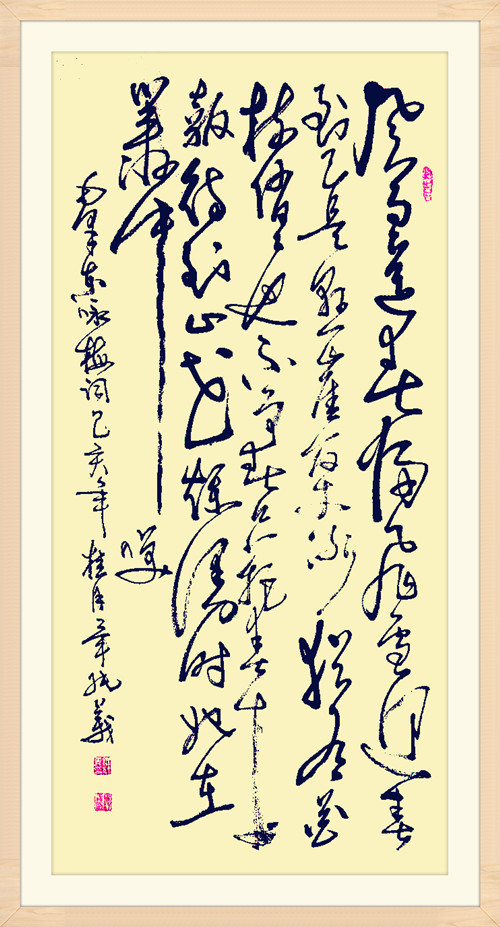 风雨送春归飞雪迎春
到已是悬崖百丈冰犹有花
枝俏俏也不争春只把春来
報待到山花爛漫时她在
叢中笑
毛泽东咏梅词己亥年桂月章義